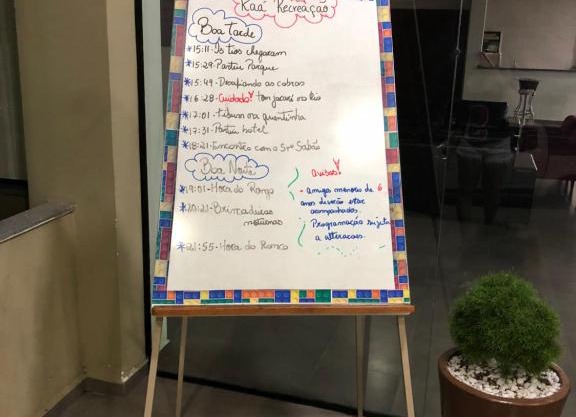 Kaá Recreação
Boa Tarde
*15:11-Os tios chegaram
*15:29-Partiu Parque
*15:49-Desafiando as cobras
*16:28-Cuidado! tem jacaré no Rio
*17:01-Tibum na quentinha
*17:31-Partiu hotel
*18:21-Encontro com o Srº Sabão
Boa Noite
*19:01-Hora do Rango
*20:21-Brincadeiras
noturnas
*21:55-Hora do Ronco
avisos!
- amigos menores de 6
anos deverão estar
acompanhados.
Programação sujeita
a alteracoes.